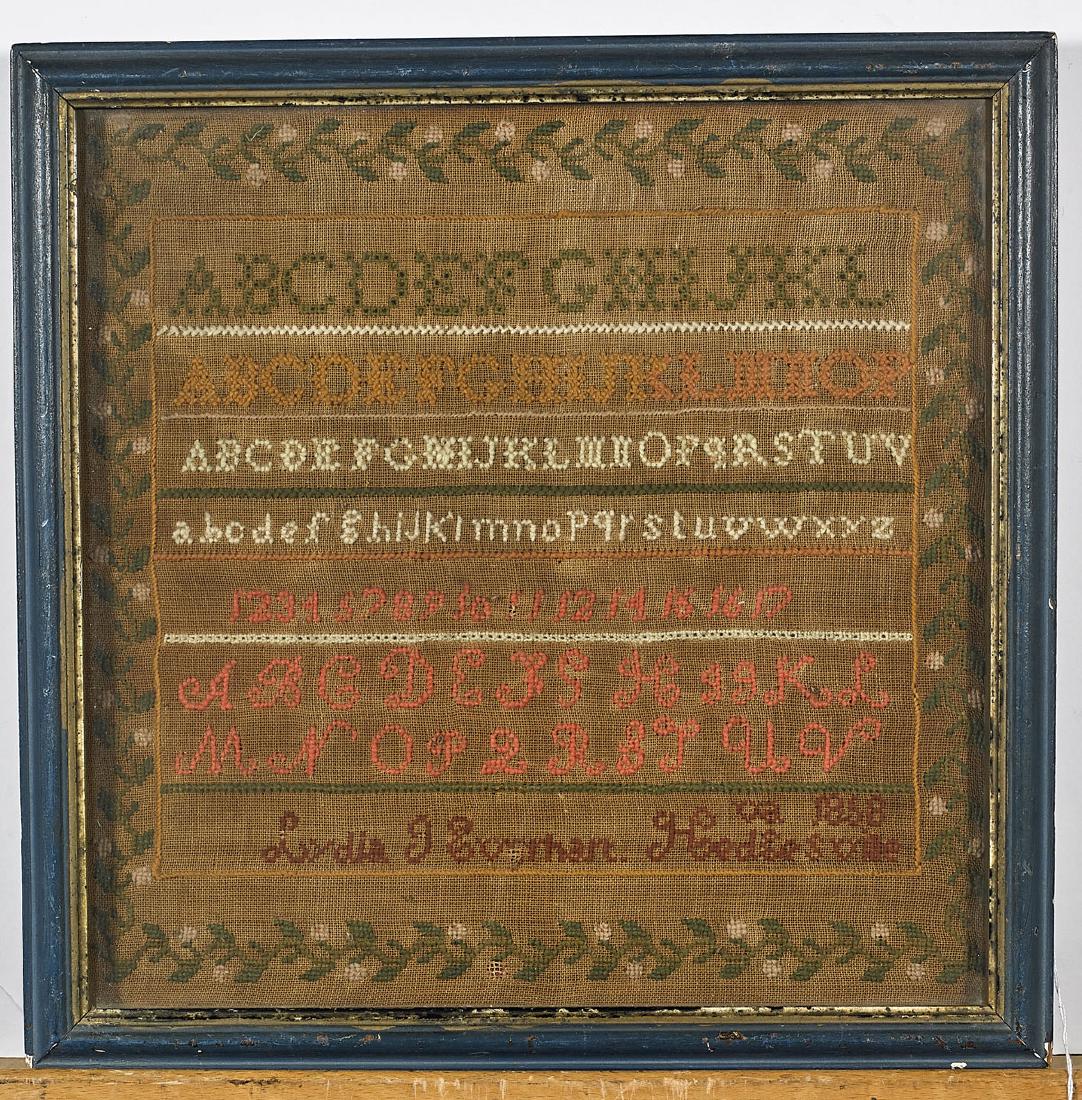 ABCDEF GHIJKL
ABCDEFGHIJKLMNOP
ABCDEFGHIJKLMNOPqRSTUV
abcdefghijklmnopqrstuvwxyz
1234 5 7 8 9 10 11 12 14 15 16 17
A B C D E F G H I J K L
M N O P Q R S T U V
va 1858
J